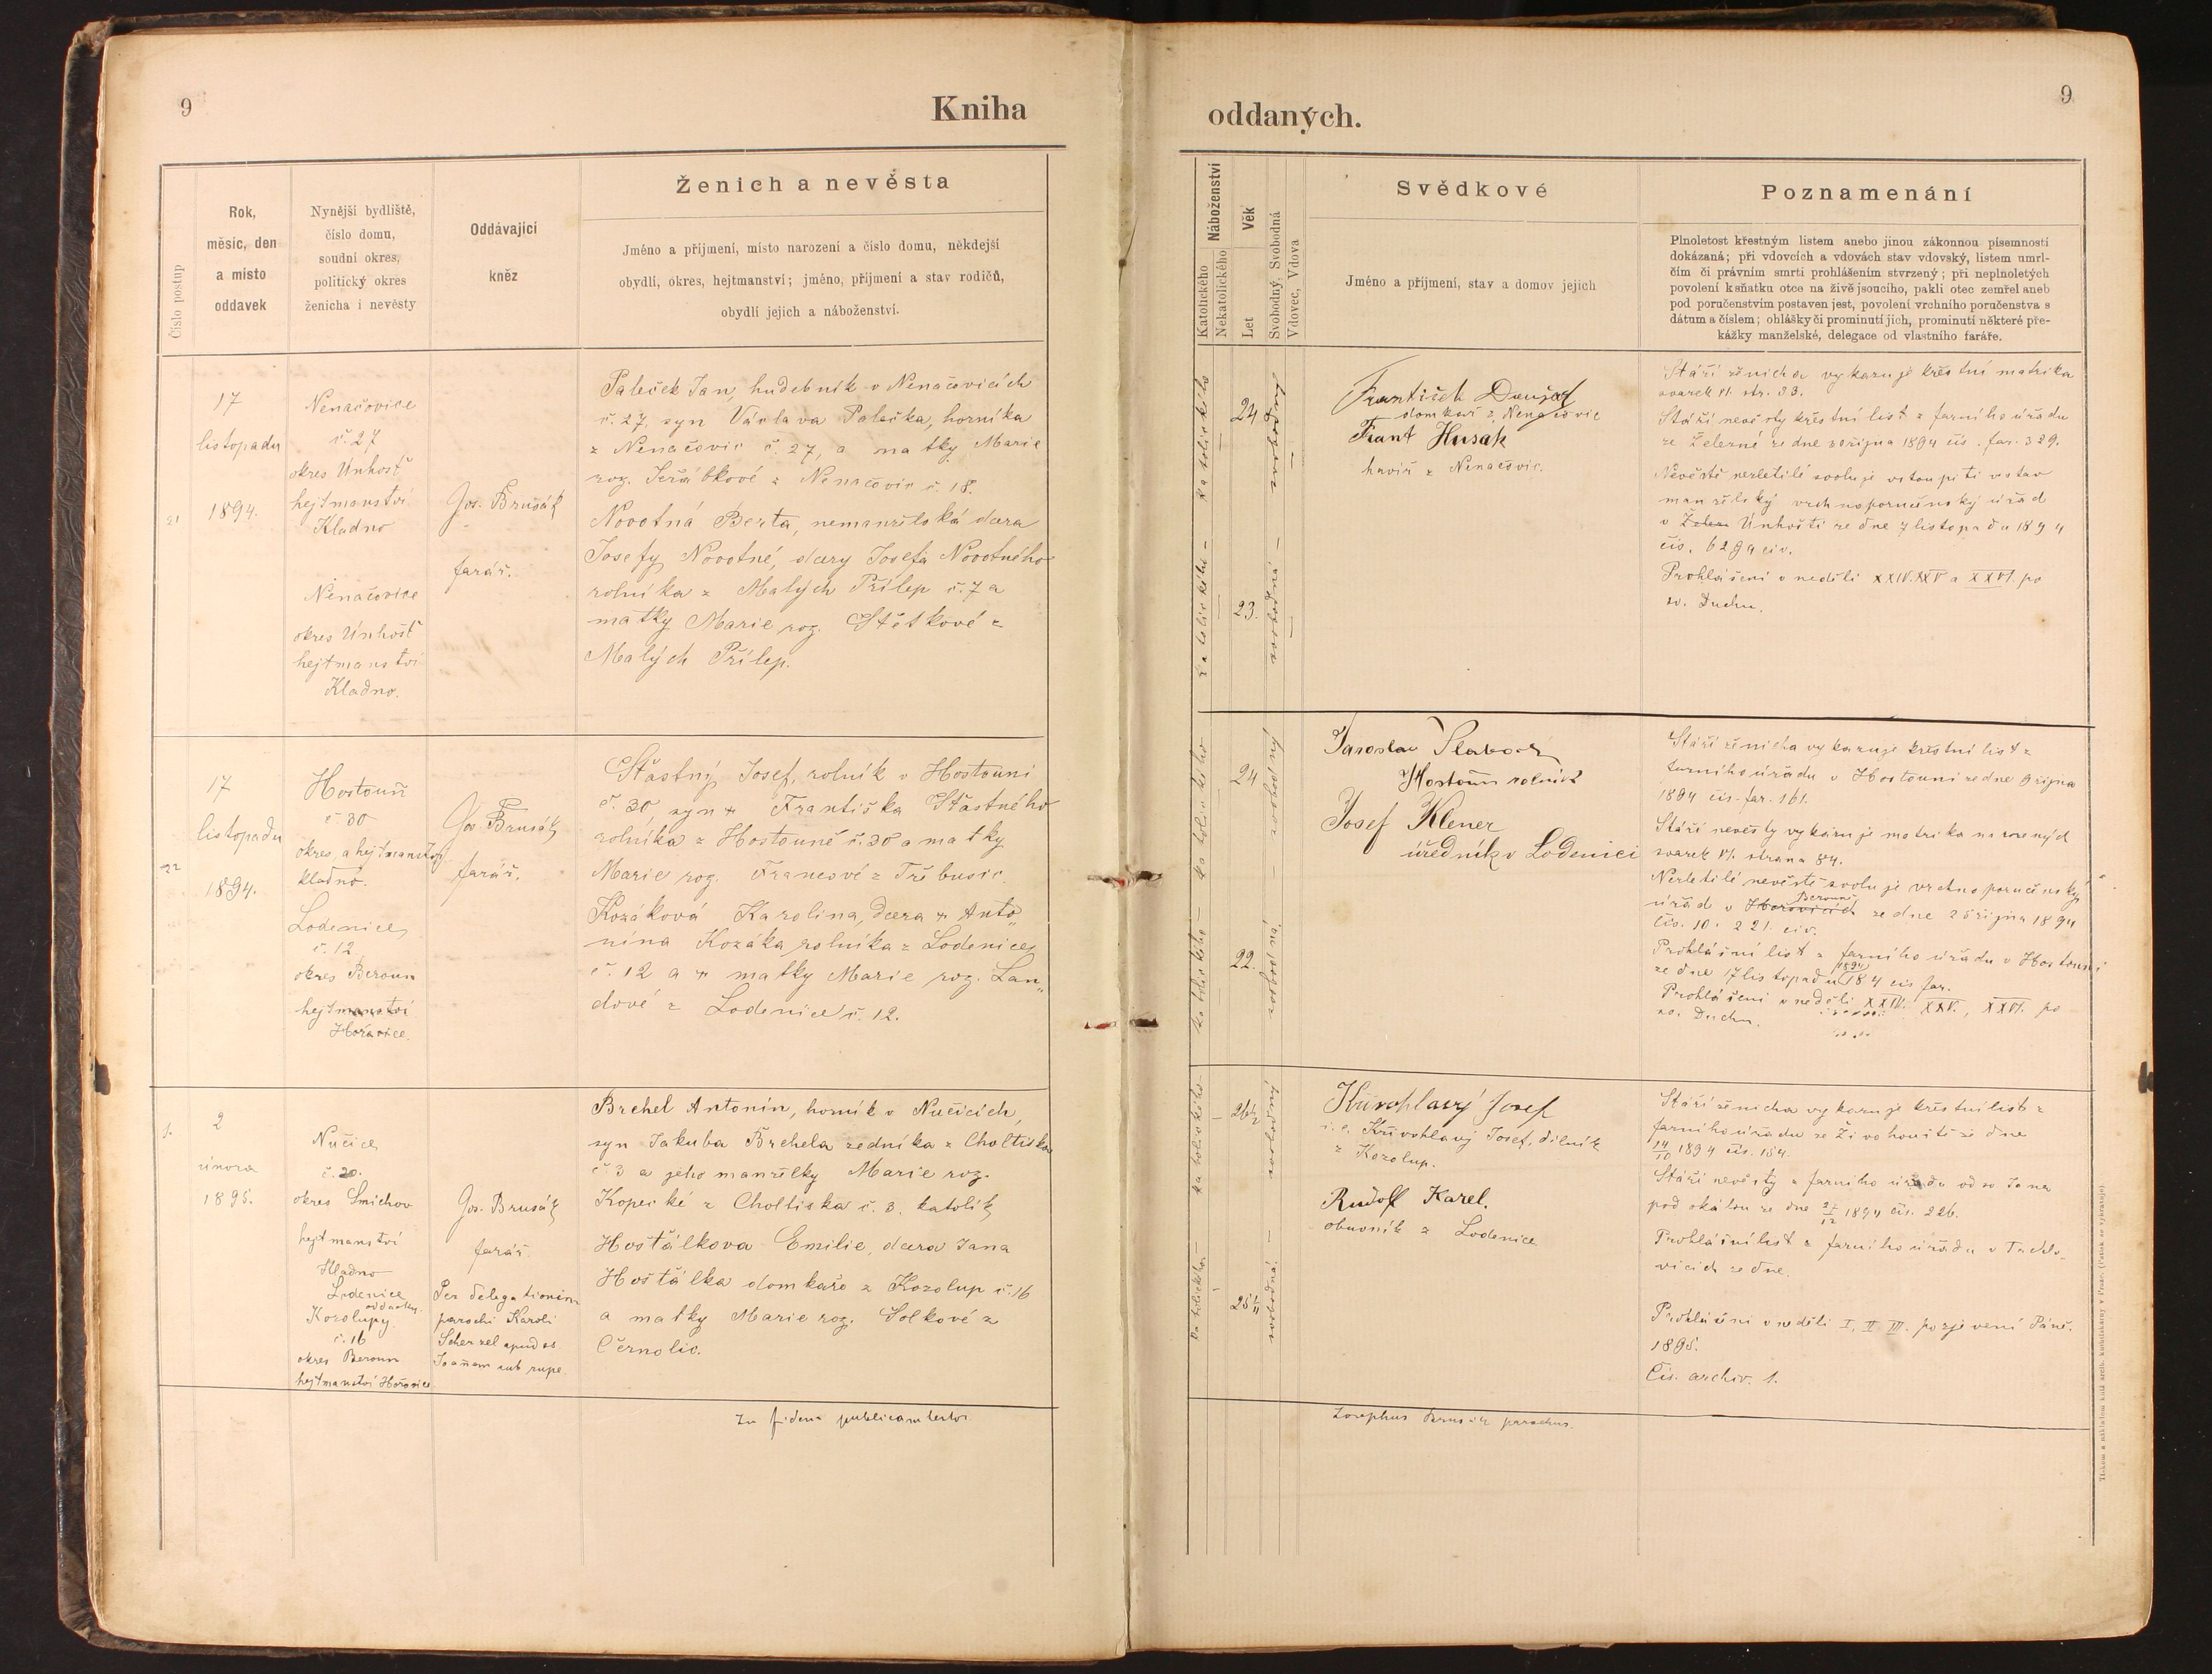 9
Kniha
Číslo postup
Rok,
měsíc, den
a místo
oddavek
Nynější bydliště,
číslo domu,
soudní okres,
politický okres
ženicha i nevěsty
Oddávající
kněz
Ženich a nevěsta
Jméno a příjmení, místo narození a číslo domu, někdejší
obydlí, okres, hejtmanství; jméno, příjmení a stav rodičů,
obydlí jejich a náboženství.
21
17
listopadu
1894.
Nenačovice
č. 27
okres Únhošť
hejtmanství
Kladno
Nenačovice
okres Únhošť
hejtmanství
Kladno.
Jos. Brusák
farář.
Paleček Jan, hudebník v Nenačovicích
č. 27, syn Václava Palečka, horníka
z Nenačovic č. 27, a matky Marie
roz. Jeřábkové z Nenačovic č. 18.
Novotná Berta, nemanželská dcera
Josefy Novotné, dcery Josefa Novotného
rolníka z Malých Přílep č. 7 a
matky Marie roz. Štětkové z
Malých Přílep.
22
17
listopadu
1894.
Hostouň
č 30
okres, a hejtmanství
kladno.
Lodenice
č. 12
okres Beroun
hejtmanství
Hořovice.
Jos. Brusák
farář.
Šťastný Josef, rolník v Hostouni
č. 30, syn + Františka Šťastného
rolníka z Hostouně č. 30 a matky
Marie roz. Francové z Třebusic
Kozáková Karolina, dcera + Anto„
nína Kozáka rolníka z Lodenice
č. 12 a + matky Marie roz. Lan„
dové z Lodenice č. 12.
1.
2
února
1895.
Nučice
č. 20.
okres Smíchov
hejtmanství
Kladno
Lodenice
oddavky
Kozolupy
č. 16
okres Beroun
hejtmanství Hořovice
Jos. Brusák
farář
Per delegationem
parochi Karoli
Scherzel apud ss.
Joannem sub rupe
Brchel Antonín, horník v Nučicích,
syn Jakuba Brchela zedníka z Choltiska
č 3 a jeho manželky Marie roz.
Kopecké z Choltiska č. 3. katolík
Hošťálkova Emilie, dcera Jana
Hošťálka domkaře z Kozolup č. 16
a matky Marie roz. Solkové z
Černolic.
In fidem publicam testor
oddaných.
9
Náboženství
Katolického
Nekatolického
Věk
Let
Svobodný, Svobodná
Vdovec, Vdova
Svědkové
Jméno a příjmení, stav a domov jejich
Poznamenání
Plnoletost křestným listem anebo jinou zákonnou písemností
dokázaná; při vdovcích a vdovách stav vdovský, listem umrl-
čím či právním smrti prohlášením stvrzený; při neplnoletých
povolení k sňatku otce na živě jsoucího, pakli otec zemřel aneb
pod poručenstvím postaven jest, povolení vrchního poručenstva s
dátum a číslem; ohlášky či prominutí jich, prominutí některé pře-
kážky manželské, delegace od vlastního faráře.
katolického
katolického
24
23.
svobodný
svobodná
František
domkář z Nenačovic
Frant Husák
havíř z Nenačovic.
Stáří ženicha vykazuje křestní matrika
svazek VI. str. 33.
Stáří nevěsty křestní list z farního úřadu
ze Železné ze dne 30 října 1894 čís. far. 329.
Nevěstě nezletilé svoluje vstoupiti v stav
manželský vrchnoporučenský úřad
v Únhošti ze dne 7 listopadu 1894
čís. 6299 civ.
Prohlášení v neděli XXIV. XXV a XXVI. po
sv. Duchu.
katolického
katolického
24
22.
svobodný
svobodná
Jaroslav
Hostouň rolník
Josef Klener
úředník v Lodenici
Stáří ženicha vykazuje křestní list z
farního úřadu v Hostouni ze dne 9 října
1894 čís. far. 161.
Stáří nevěsty vykazuje matrika narozených
svazek VI. strana 84.
Nezletilé nevěstě svoluje vrchnoporučenský
úřad v Hořovicích Berouně ze dne 25 října 1894
čís. 10.221. civ.
Prohlášní list z farního úřadu v Hostouni
ze dne 17 listopadu 1894 184 čís far.
Prohlášení v neděli XXIV. XXV., XXVI. po
sv. Duchu.
katolického
katolického
26½
svobodný
svobodná.
Křivohlavý Josef
i. e. Křivohlavý Josef, dělník
z Kozolup.
Rudolf Karel.
obuvník z Lodenice
Stáří ženicha vykazuje křestní list z
farního úřadu ze Živohouště ze dne
14/10 1894 čís. 154.
Stáří nevěsty z farního úřadu od sv Jana
pod skálou ze dne 27/12 1894 čís. 226.
Prohlášní list z farního úřadu v Tachlo„
vicích ze dne.
Prohlášení v neděli I, II III. po zjevení Páně.
1895.
Čís. archiv. 1.
Josephus Brusák parochus.